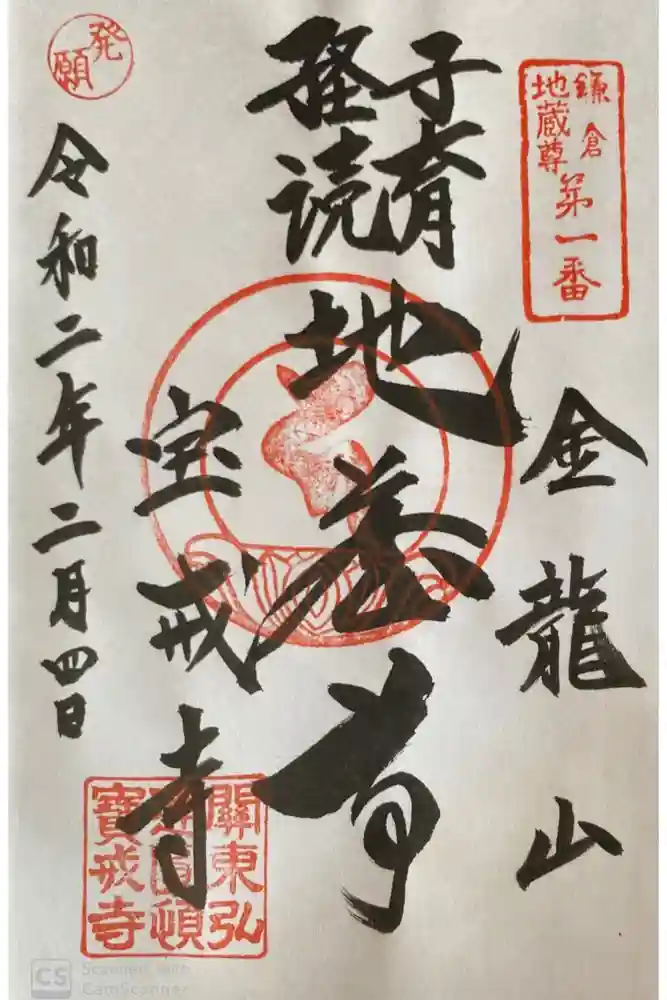 鎌倉
地蔵尊
第一番
金龍山
子育
経読
地蔵尊
宝戒寺
關東弘
通圓頓
寶戒寺
発願
令和二年二月四日
CS Scanned with
CamScanner